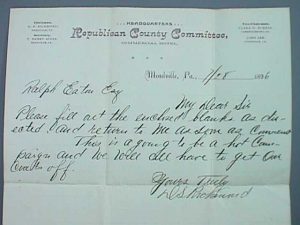 HEADQUARTERS
Republican County Committee,
COMMERCIAL HOTEL,
Meadville, Pa., 7/28 1896
Ralph Eaton Esq
My Dear Sir
Please fill out the enclosed blanks as di-
rected and return to me as soon as Convenient
This is a going to be a hot Cam-
paign and We Will all have to get our
Coats off.
Yours Truly